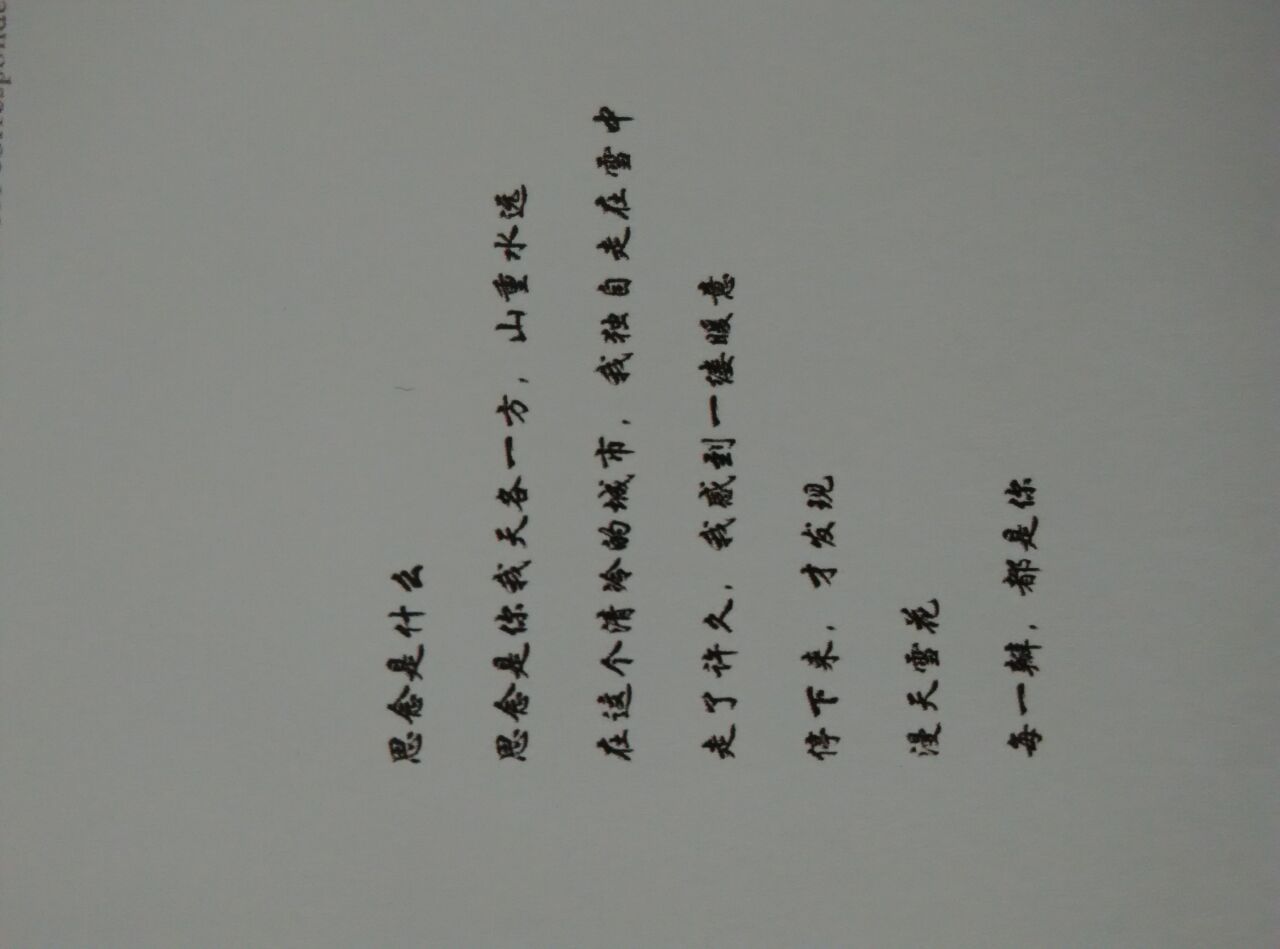 思念是什么
思念是你我天各一方，山重水远
在这个清冷的城市，我独自走在雪中
走了许久，我感到一缕暖意
停下来，才发现
漫天雪花
每一瓣，都是你